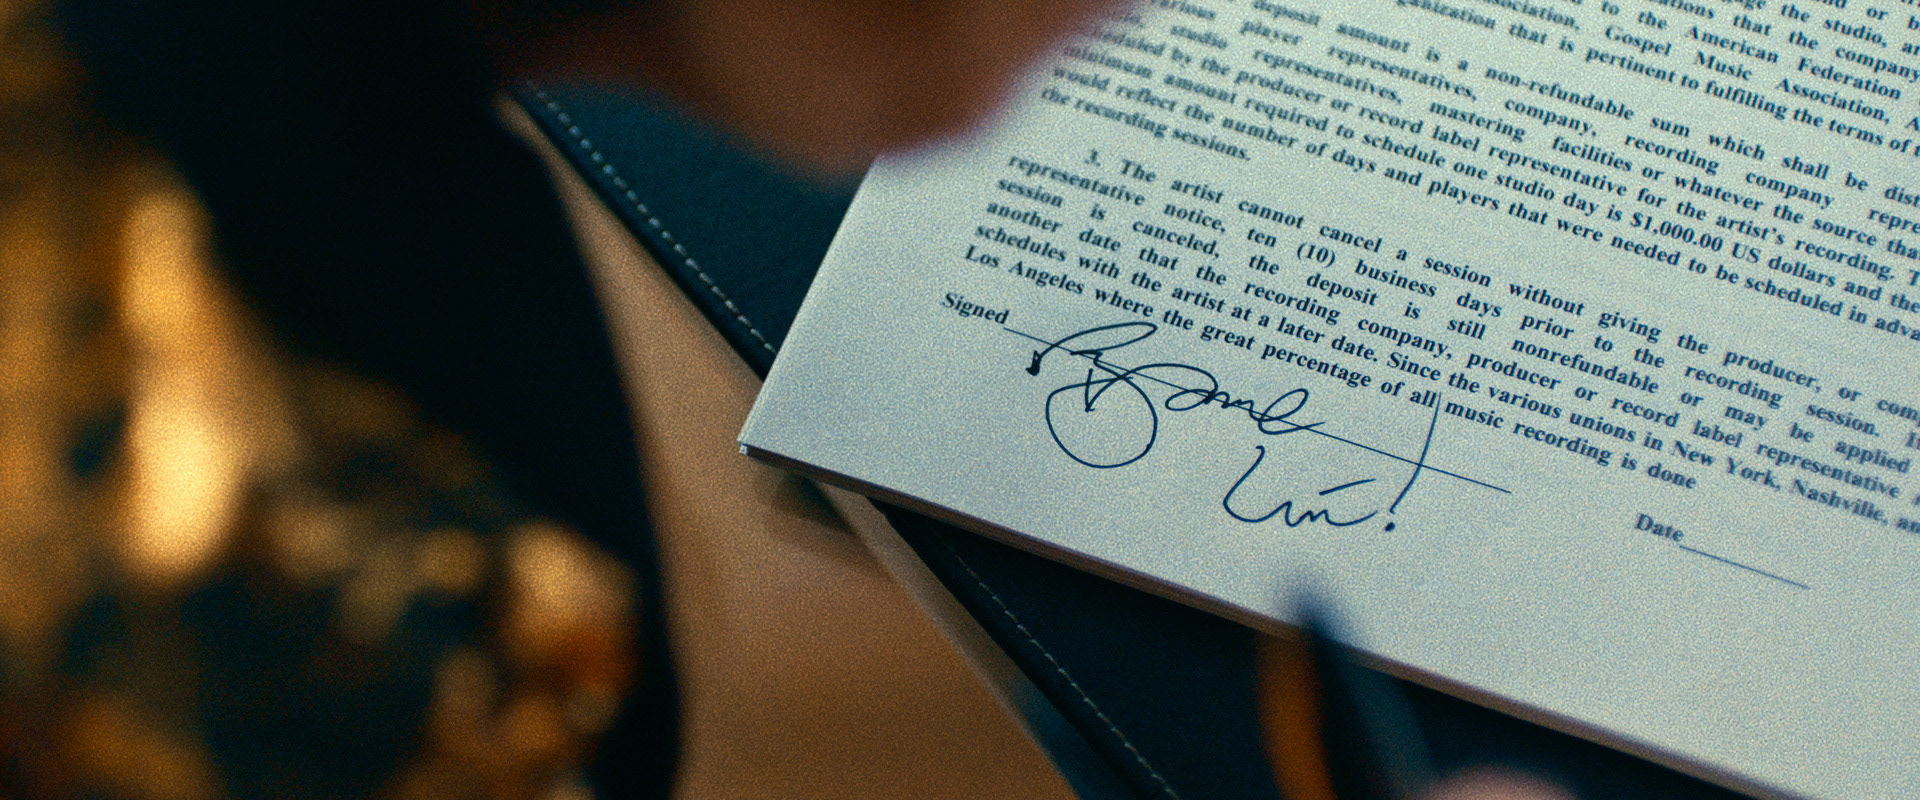 or
the studio,
that the company
to the American Federation
Gospel Music Association,
that is pertinent to fulfilling the terms of
deposit amount is a non-refundable sum which shall be
player representatives, company, recording company
studio representatives, mastering facilities or whatever the source
by the producer or record label representative for the artist's recording.
minimum amount required to schedule one studio day is $1,000.00 US dollars and the
would reflect the number of days and players that were needed to be scheduled in
the recording sessions.
3. The artist cannot cancel a session without giving the producer, or
representative notice, ten (10) business days prior to the recording session.
session is canceled, the deposit is still nonrefundable or may be applied
another date that the recording company, producer or record label representative
schedules with the artist at a later date. Since the various unions in New York, Nashville,
Los Angeles where the great percentage of all music recording is done
Signed
Date